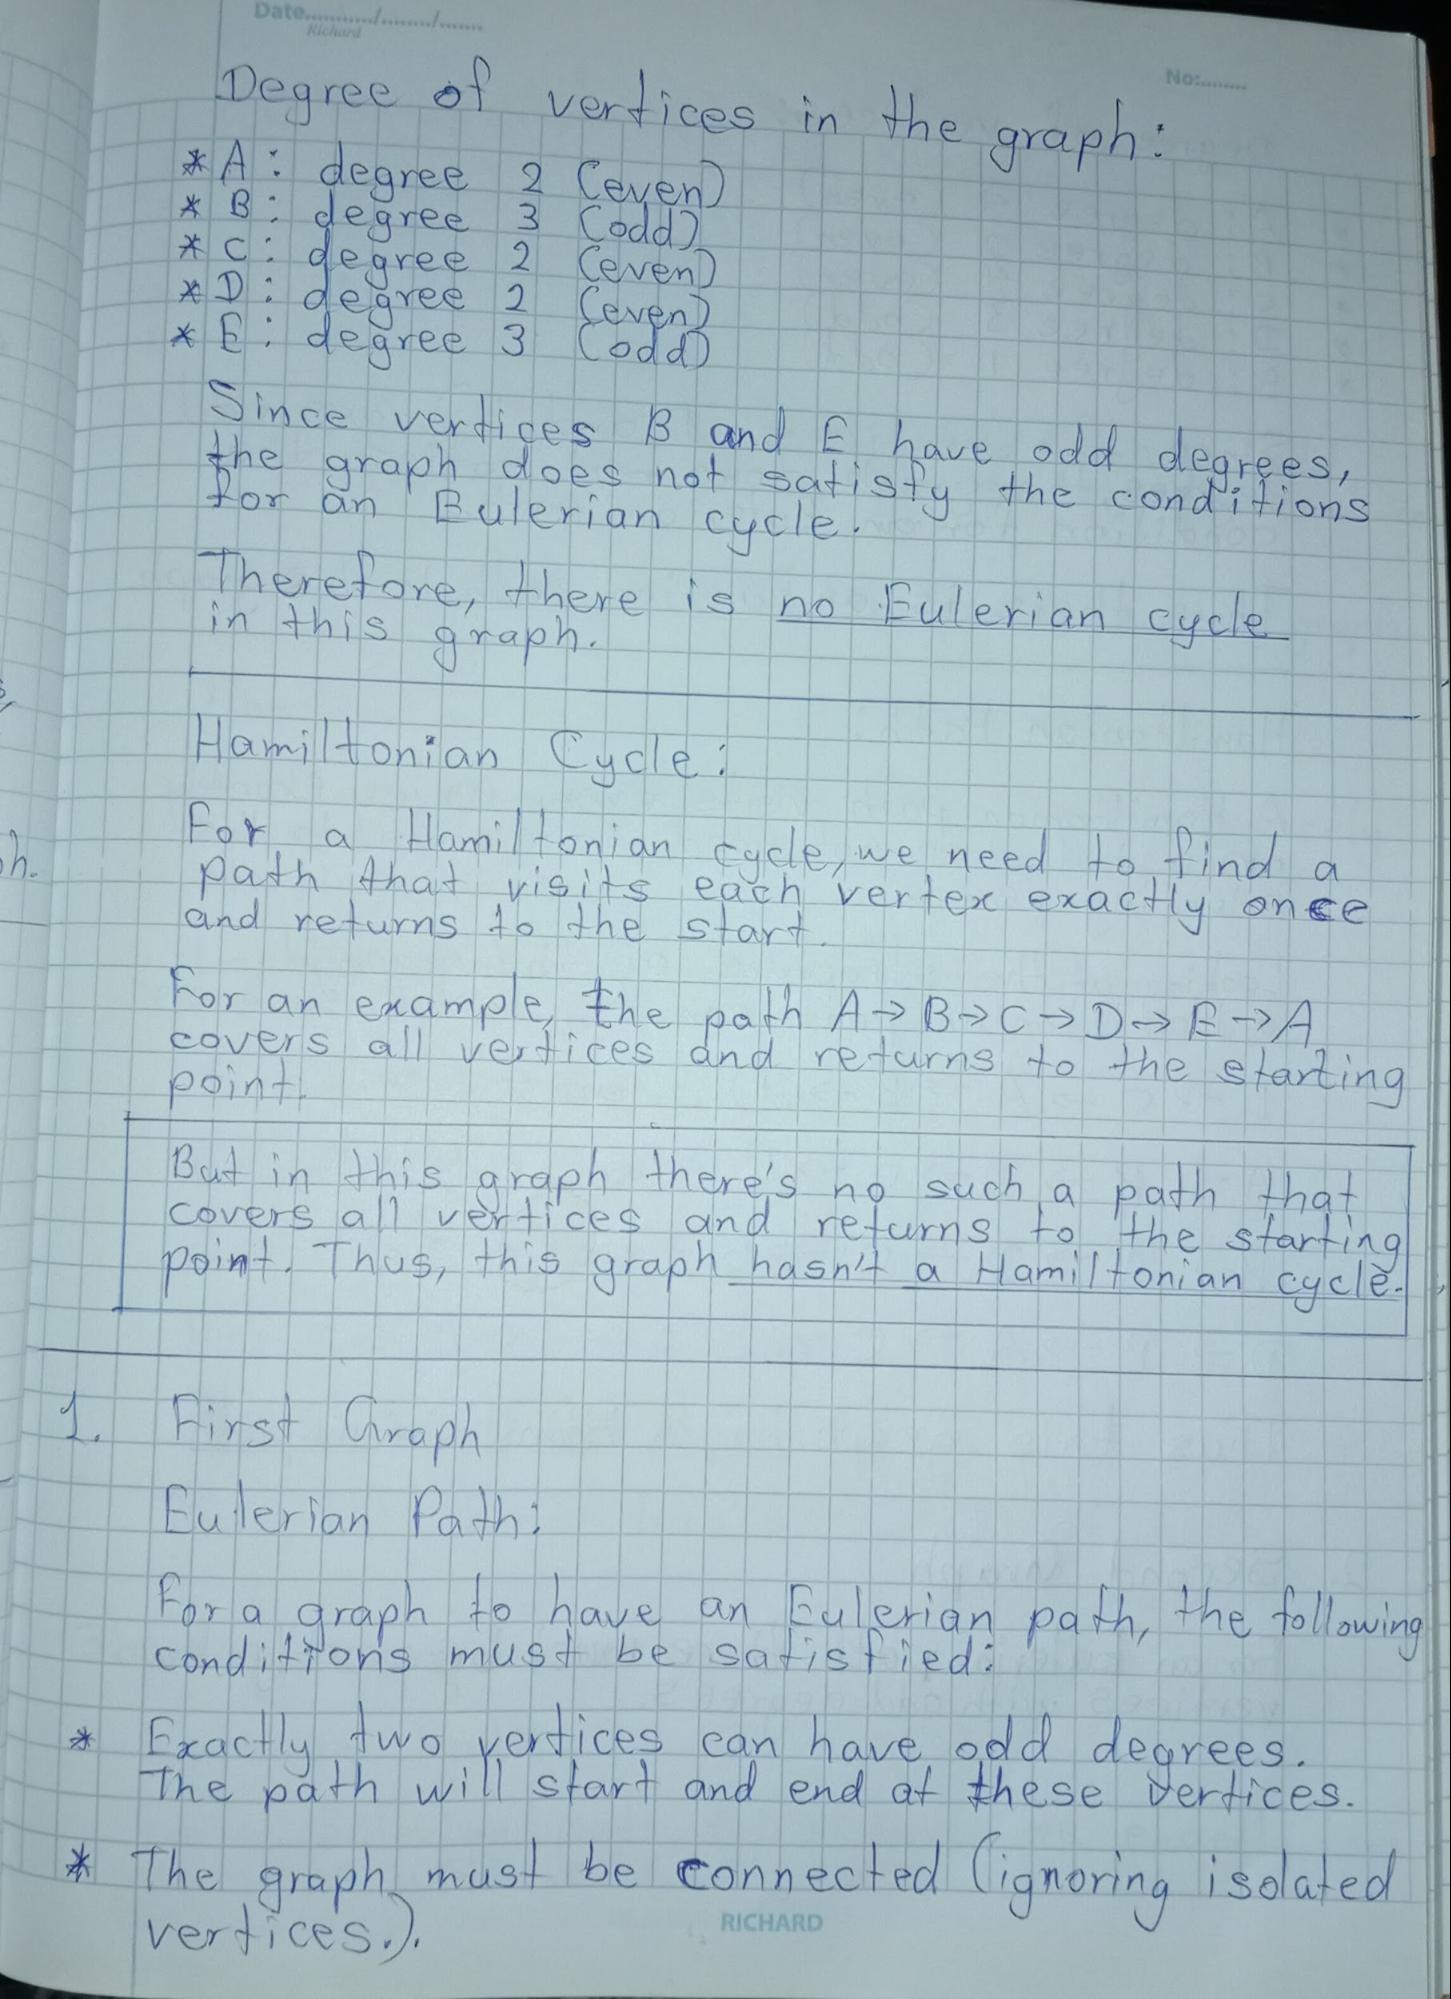 Date............/........./.......
Richard
No:........
Degree of vertices in the graph:
* A: degree 2 (even)
* B: degree 3 (odd)
* C: degree 2 (even)
* D: degree 2 (even)
* E: degree 3 (odd)
Since vertices B and E have odd degrees,
the graph does not satisfy the conditions
for an Eulerian cycle.
Therefore, there is no Eulerian cycle
in this graph.
Hamiltonian Cycle:
For a Hamiltonian cycle, we need to find a
path that visits each vertex exactly once
and returns to the start.
For an example, the path A → B → C → D → E → A
covers all vertices and returns to the starting
point.
But in this graph there's no such a path that
covers all vertices and returns to the starting
point. Thus, this graph hasn't a Hamiltonian cycle.
1. First Graph
Eulerian Path:
For a graph to have an Eulerian path, the following
conditions must be satisfied:
* Exactly two vertices can have odd degrees.
The path will start and end at these vertices.
* The graph must be connected (ignoring isolated
vertices.).
RICHARD